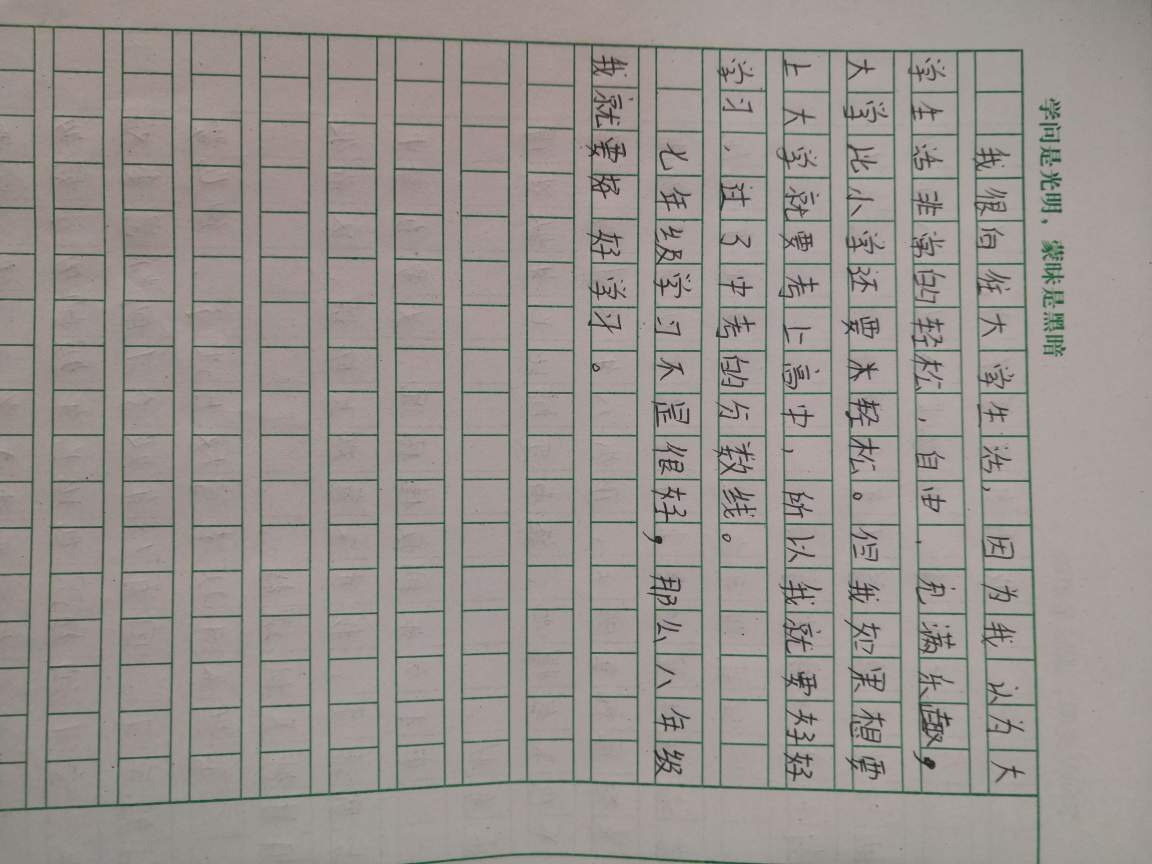 学问是光明，蒙昧是黑暗
我很向往大学生活，因为我认为大
学生活非常的轻松，自由、充满乐趣，
大学比小学还要来轻松。但我如果想要
上大学就要考上高中，所以我就要好好
学习，过了中考的分数线。
七年级学习不是很好，那么八年级
我就要好好学习。